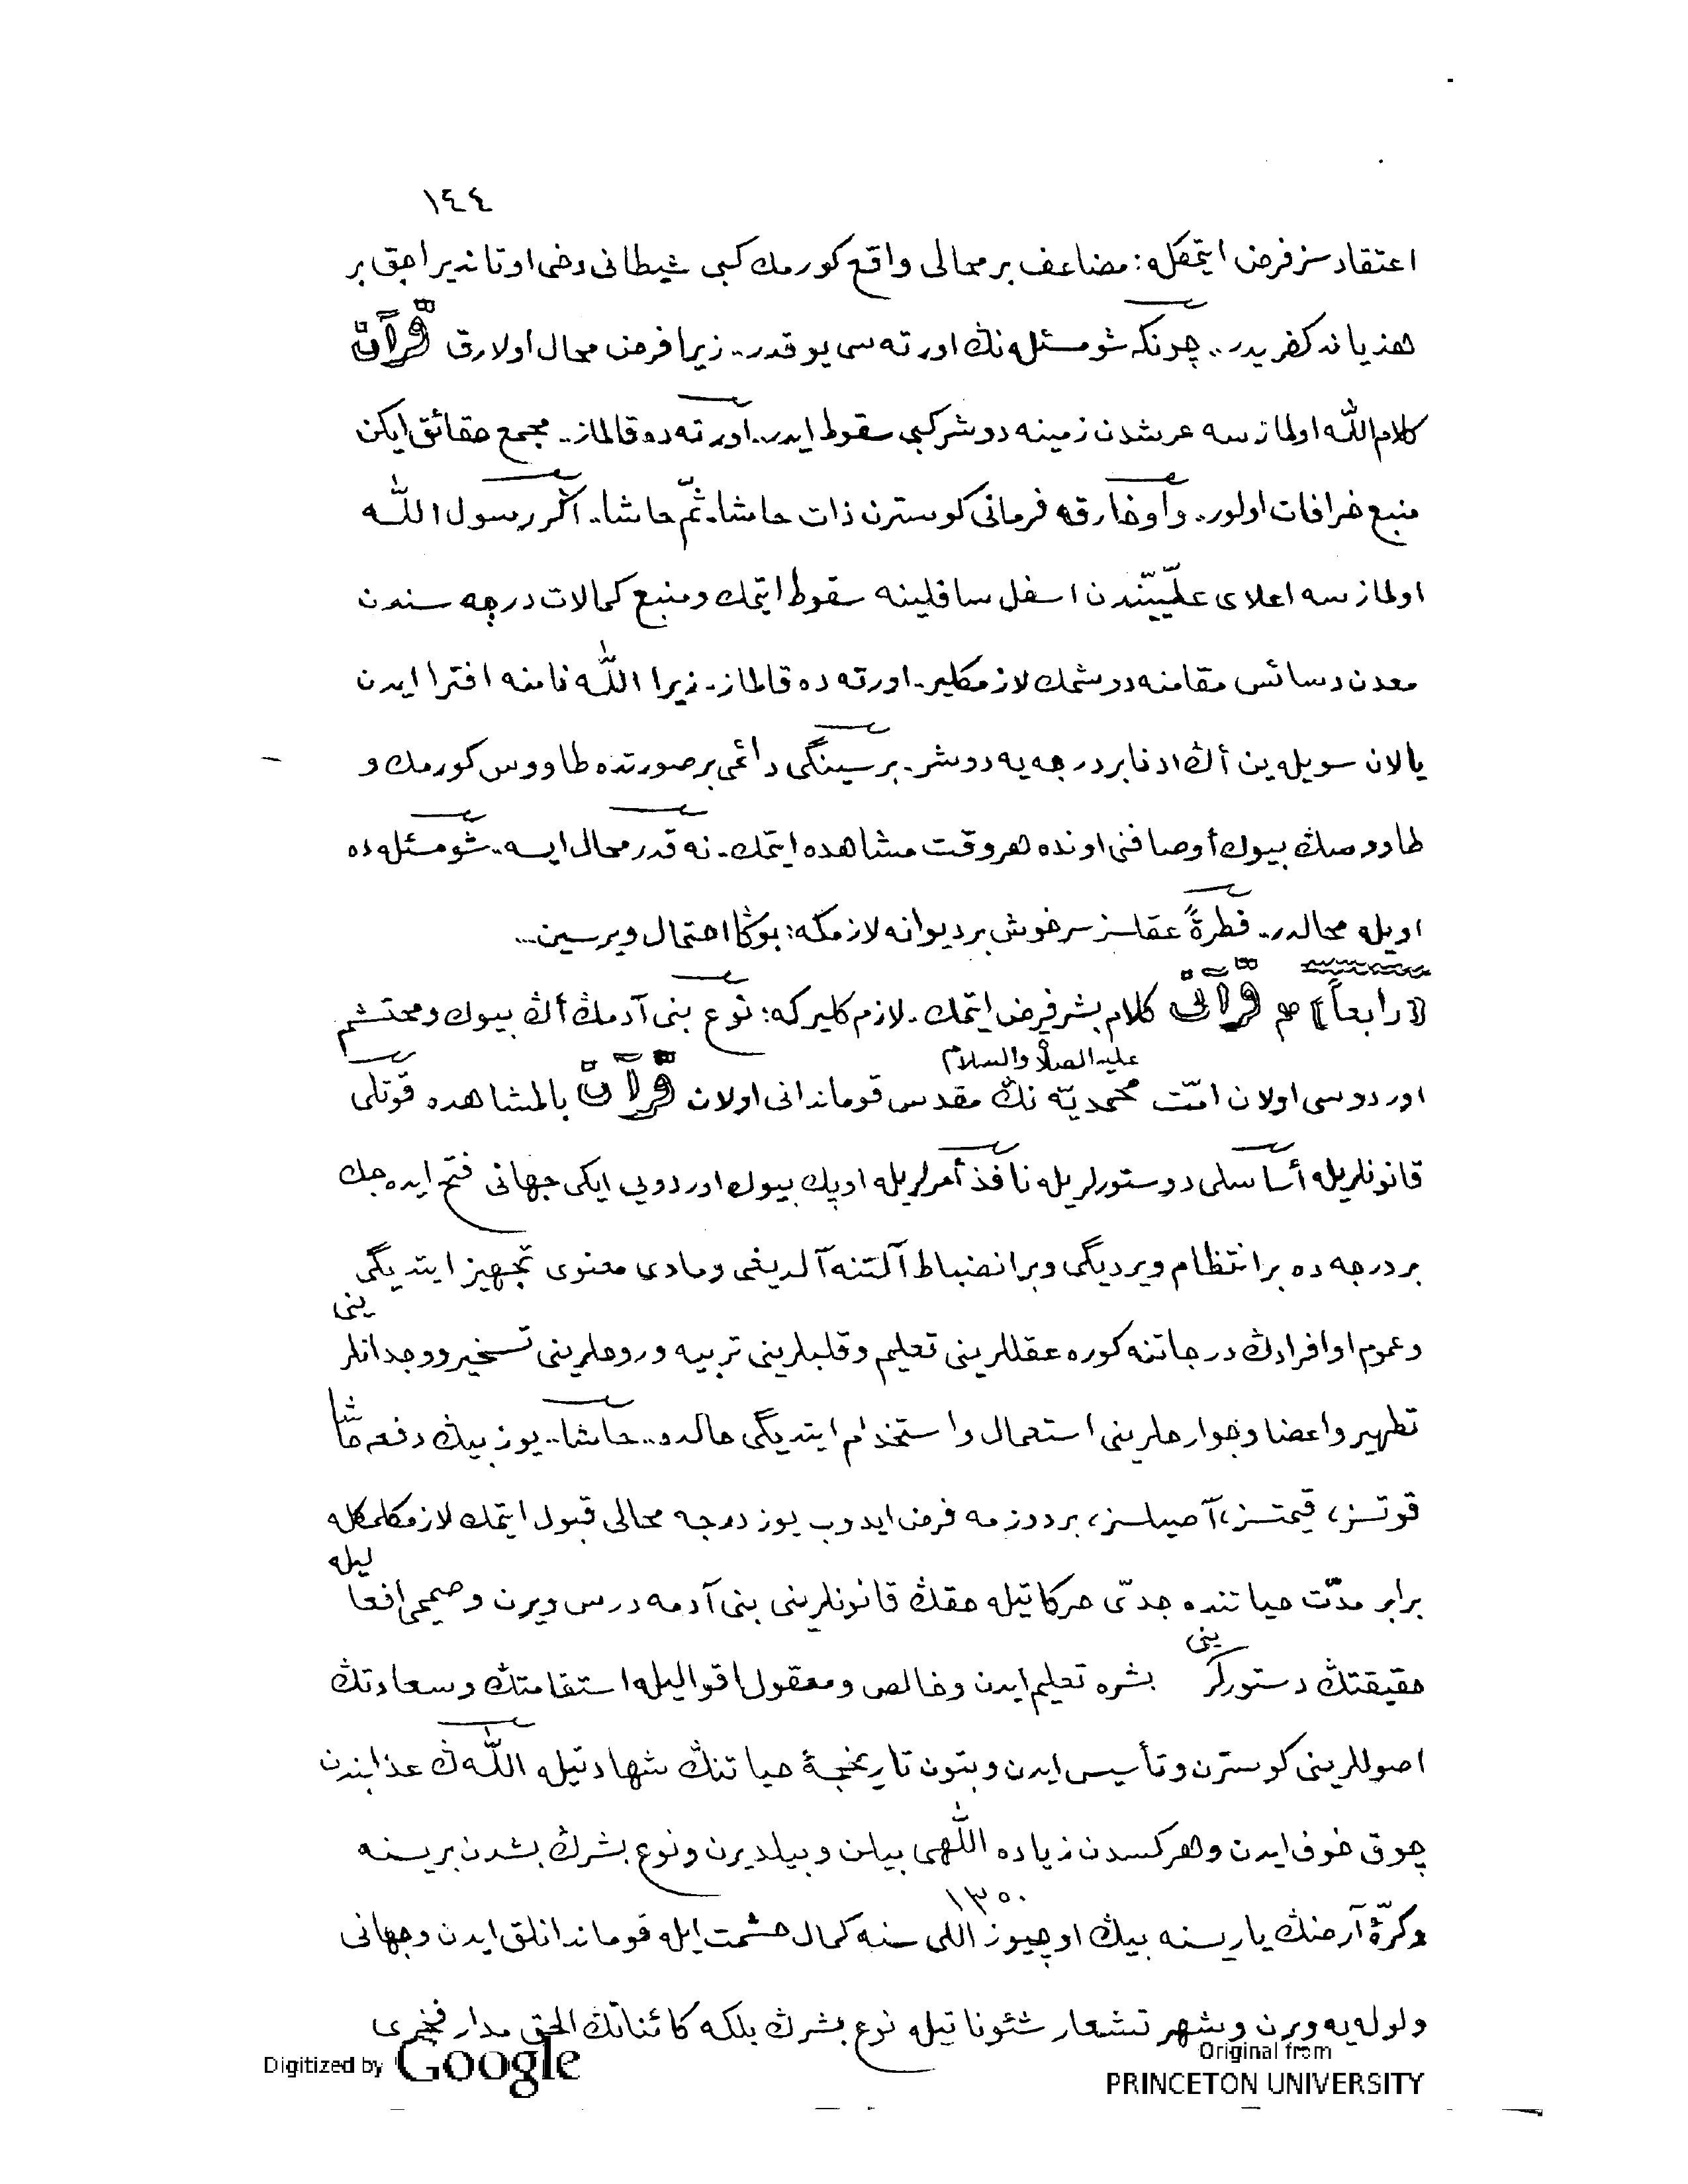 ١٤٤
اعتقادسز فرض ايتمكله: مضاعف بر محالى واقع كورمك كبى شيطانى دخى اوتانديراجق بر
هذيانه كفريدر.. چونكه شو مسئله نڭ اورته سى يوقدر.. زيرا فرض محال اولارق قرآن
كلام الله اولمازسه عرشدن زمينه دوشر كبى سقوط ايدر.. اورته ده قالماز.. مجمع حقائق ايكن
منبع خرافات اولور.. و او خارقه فرمانى كوسترن ذات حاشا.. ثمّ حاشا.. اگر رسول الله
اولمازسه اعلاى علّييّندن اسفل سافلينه سقوط ايتمك و منبع كمالات درجه سندن
معدن دسائس مقامنه دوشمك لازمكلير.. اورته ده قالماز.. زيرا الله نامنه افترا ايدن
يالان سويله ين أڭ ادنا بر درجه يه دوشر.. بر سينگى دائمى بر صورتده طاووس كورمك و
طاووسڭ بيوك أوصافنى اونده هر وقت مشاهده ايتمك.. نه قدر محال ايسه.. شو مسئله ده
اويله محالدر.. فطرةً عقلسز سرخوش بر ديوانه لازمكه: بوڭا احتمال ويرسين...
﴿رابعاً﴾ هم قرآنى كلام بشر فرض ايتمك.. لازم كلير كه: نوع بنى آدمڭ أڭ بيوك و محتشم
عليه الصلاة والسلام
اوردوسى اولان امّت محمديّه نڭ مقدس قوماندانى اولان قرآن بالمشاهده قوتلى
قانونلريله أساسلى دوستورلريله نافذ أمرلريله او پك بيوك اوردويى ايكى جهانى فتح ايده جك
بر درجه ده بر انتظام ويرديگى و بر انضباط آلتنه آلديغى و مادى معنوى تجهيز ايتديگى
و عموم او افرادڭ درجاتنه كوره عقللرينى تعليم و قلبلرينى تربيه و روحلرينى تسخير و وجدانلرينى
تطهير و اعضا و جوارحلرينى استعمال و استخدام ايتديگى حالده.. حاشا.. يوز بيڭ دفعه حاشا
قوتسز، قيمتسز، آصيلسز، بر دوزمه فرض ايدوب يوز درجه محالى قبول ايتمك لازمكلمكله
برابر مدّت حياتنده جدّى حركاتيله حقڭ قانونلرينى بنى آدمه درس ويرن و صميمى أفعاليله
حقيقتڭ دستورلرينى بشره تعليم ايدن و خالص و معقول اقواليله استقامتڭ و سعادتڭ
اصوللرينى كوسترن و تأسيس ايدن و بتون تاريخچهٔ حياتنڭ شهادتيله اللهڭ عذابندن
چوق خوف ايدن و هركسدن زياده اللهى بيلن و بيلديرن و نوع بشرڭ بشدن بريسنه
١٣٥٠
و كرّهٔ آرضڭ ياريسنه بيڭ اوچيوز اللى سنه كمال حشمت ايله قوماندانلق ايدن و جهانى
ولوله يه ويرن و شهرتشعار شئوناتيله نوع بشرڭ بلكه كائناتڭ الحق مدار فخرى
Digitized by Google
Original from
PRINCETON UNIVERSITY